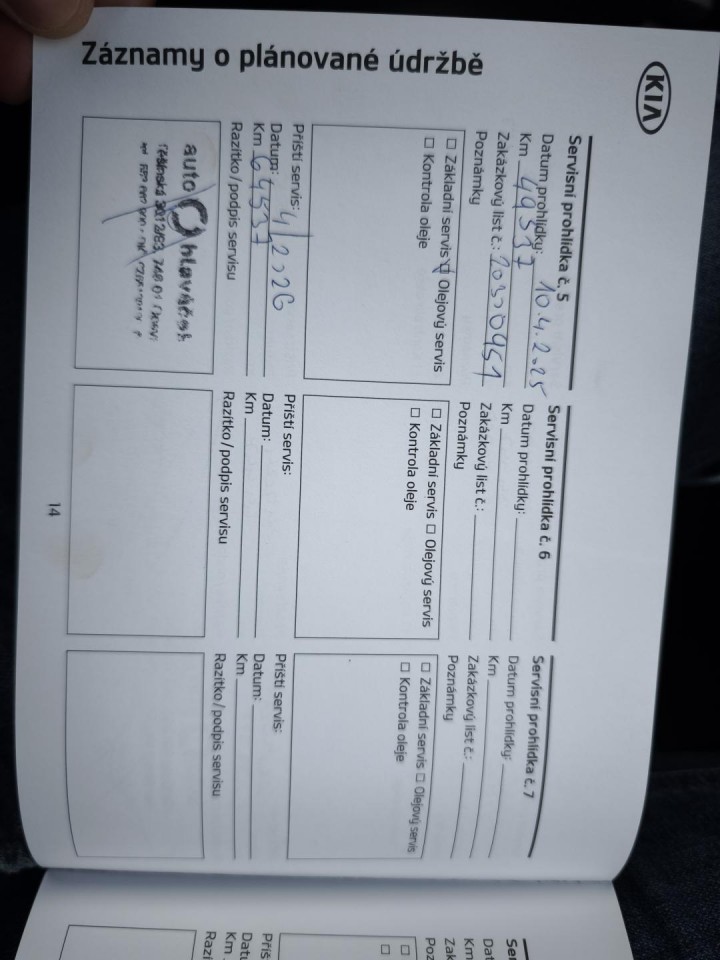 Záznamy o plánované údržbě
KIA
Servisní prohlídka č. 5
Datum prohlídky: 10.4.2025
Km 49537
Zakázkový list č.: 20300951
Poznámky
□ Základní servis ☒ Olejový servis
□ Kontrola oleje
Příští servis:
Datum: 4/2026
Km 64537
Razítko/podpis servisu
auto hlaváček
Servisní prohlídka č. 6
Datum prohlídky:
Km
Zakázkový list č.:
Poznámky
□ Základní servis □ Olejový servis
□ Kontrola oleje
Příští servis:
Datum:
Km
Razítko/podpis servisu
Servisní prohlídka č. 7
Datum prohlídky:
Km
Zakázkový list č.:
Poznámky
□ Základní servis □ Olejový servis
□ Kontrola oleje
Příští servis:
Datum:
Km
Razítko/podpis servisu
14